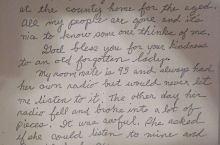 at the county home for the aged.
All my people are gone and it's
nice to know some one thinks of me.
God bless you for your kindness
to an old forgotten lady.
My roommate is 95 and always had
her own radio but would never let
me listen to it. The other day her
radio fell and broke into a lot of
pieces. It was awful. She asked
if she could listen to mine and